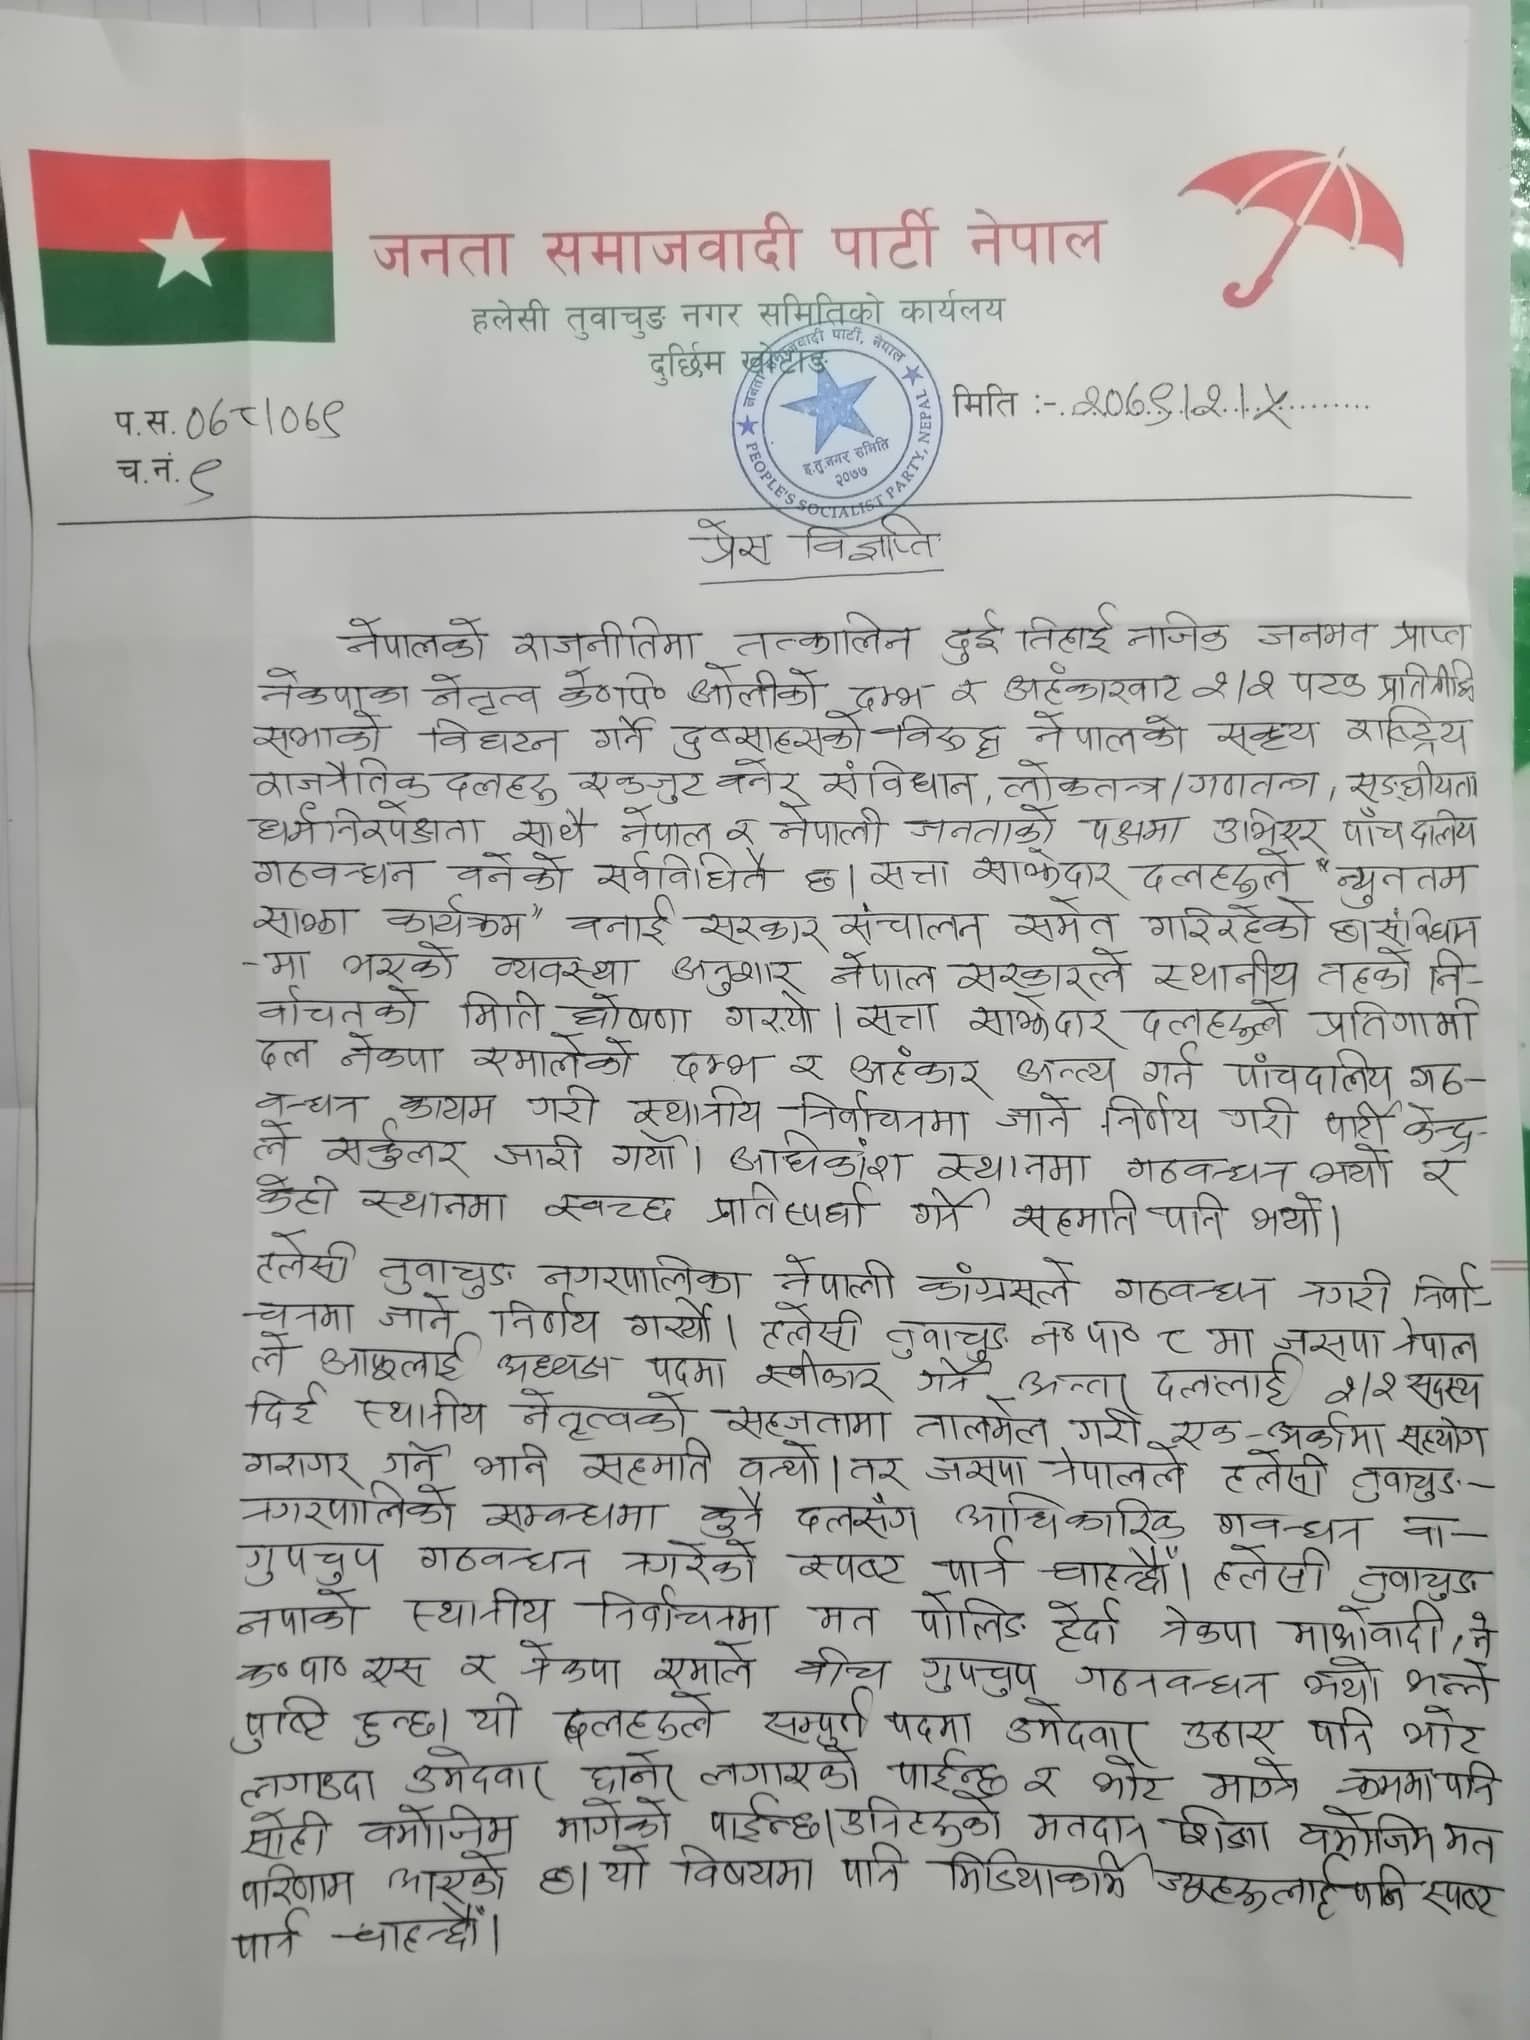 जनता समाजवादी पार्टी नेपाल
हलेसी तुवाचुङ नगर समितिको कार्यलय
दुर्छिम खोटाङ
जनता समाजवादी पार्टी, नेपाल
ह.तु.नगर समिति
२०७७
PEOPLE'S SOCIALIST PARTY, NEPAL
प.स. ०७८/०७९
मिति :- २०७९/२/५
च.नं. ९
प्रेस विज्ञप्ति
नेपालको राजनीतिमा तत्कालिन दुई तिहाई नाजिक जनमत प्राप्त
नेकपाका नेतृत्व के०पि० ओलीको दम्भ र अहंकारवाट २/२ पटक प्रतिनीधि
सभाको विघटन गर्ने दुष्साहसको विरुद्ध नेपालको सहृय राष्ट्रिय
राजनैतिक दलहरु एकजुट वनेर संविधान, लोकतन्त्र/गणतन्त्र, सङ्घीयता
धर्मनिरपेक्षता साथै नेपाल र नेपाली जनताको पक्षमा उभिएर पाँचदालिय
गठवन्धन वनेको सर्वविधितै छ। सत्ता साझेदार दलहरुले "न्युनतम
साझा कार्यक्रम" वनाई सरकार संचालन समेत गरिरहेको छ। संविधान
-मा भएको व्यवस्था अनुशार नेपाल सरकारले स्थानीय तहको नि-
र्वाचनको मिति घोषणा गर्‍यो। सत्ता साझेदार दलहरुले प्रतिगामी
दल नेकपा एमालेको दम्भ र अहंकार अन्त्य गर्न पाँचदालिय गठ-
वन्धन कायम गरी स्थानीय निर्वाचनमा जाने निर्णय गरी पार्टी केन्द्र-
ले सर्कुलर जारी गर्यो। अधिकांश स्थानमा गठवन्धन भयो र
केही स्थानमा स्वच्छ प्रतिस्पर्धा गर्ने सहमति पनि भयो।
हलेसी तुवाचुङ नगरपालिका नेपाली कांग्रसले गठवन्धन नगरी निर्वा-
चनमा जाने निर्णय गर्‍यो। हलेसी तुवाचुङ न०पा० ८ मा जसपा नेपाल
ले आफुलाई अध्यक्ष पदमा स्वीकार गर्ने अन्य दललाई २/२ सदस्य
दिई स्थानीय नेतृत्वको सहजतामा तालमेल गरी एक-अर्कामा सहयोग
गरागर गर्ने भनि सहमति वन्यो। तर जसपा नेपालले हलेसी तुवाचुङ-
नगरपालिको सम्वन्धमा कुनै दलसँग आधिकारिक गवन्धन वा-
गुपचुप गठवन्धन नगरेको स्पष्ट पार्न चाहन्छौं। हलेसी तुवाचुङ
नपाको स्थानीय निर्वाचनमा मत पोलिङ हेर्दा नेकपा माओवादी, ने
क०पा० एस र नेकपा एमाले वीच गुपचुप गठनवन्धन भयो भन्ने
पुष्टि हुन्छ। यी दलहरुले सम्पुर्ण पदमा उमेदवार उठाए पनि भोट
लगाउदा उमेदवार छानेर लगाएको पाईन्छ र भोट माग्ने क्रममा पनि
सोही वमोजिम मागेको पाईन्छ। उनिहरुको मतदान शिक्षा वमोजिम मत
परिणाम आएको छ। यो विषयमा पनि मिडियाकर्मि ज्यूहरुलाई पनि स्पष्ट
पार्न चाहन्छौं।